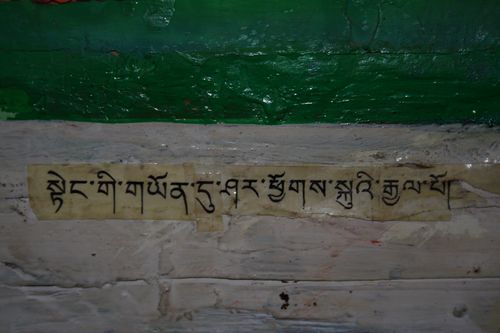 སྟེང་གི་གཡོན་དུ་ཤར་ཕྱོགས་སྐུའི་རྒྱལ་པོ།